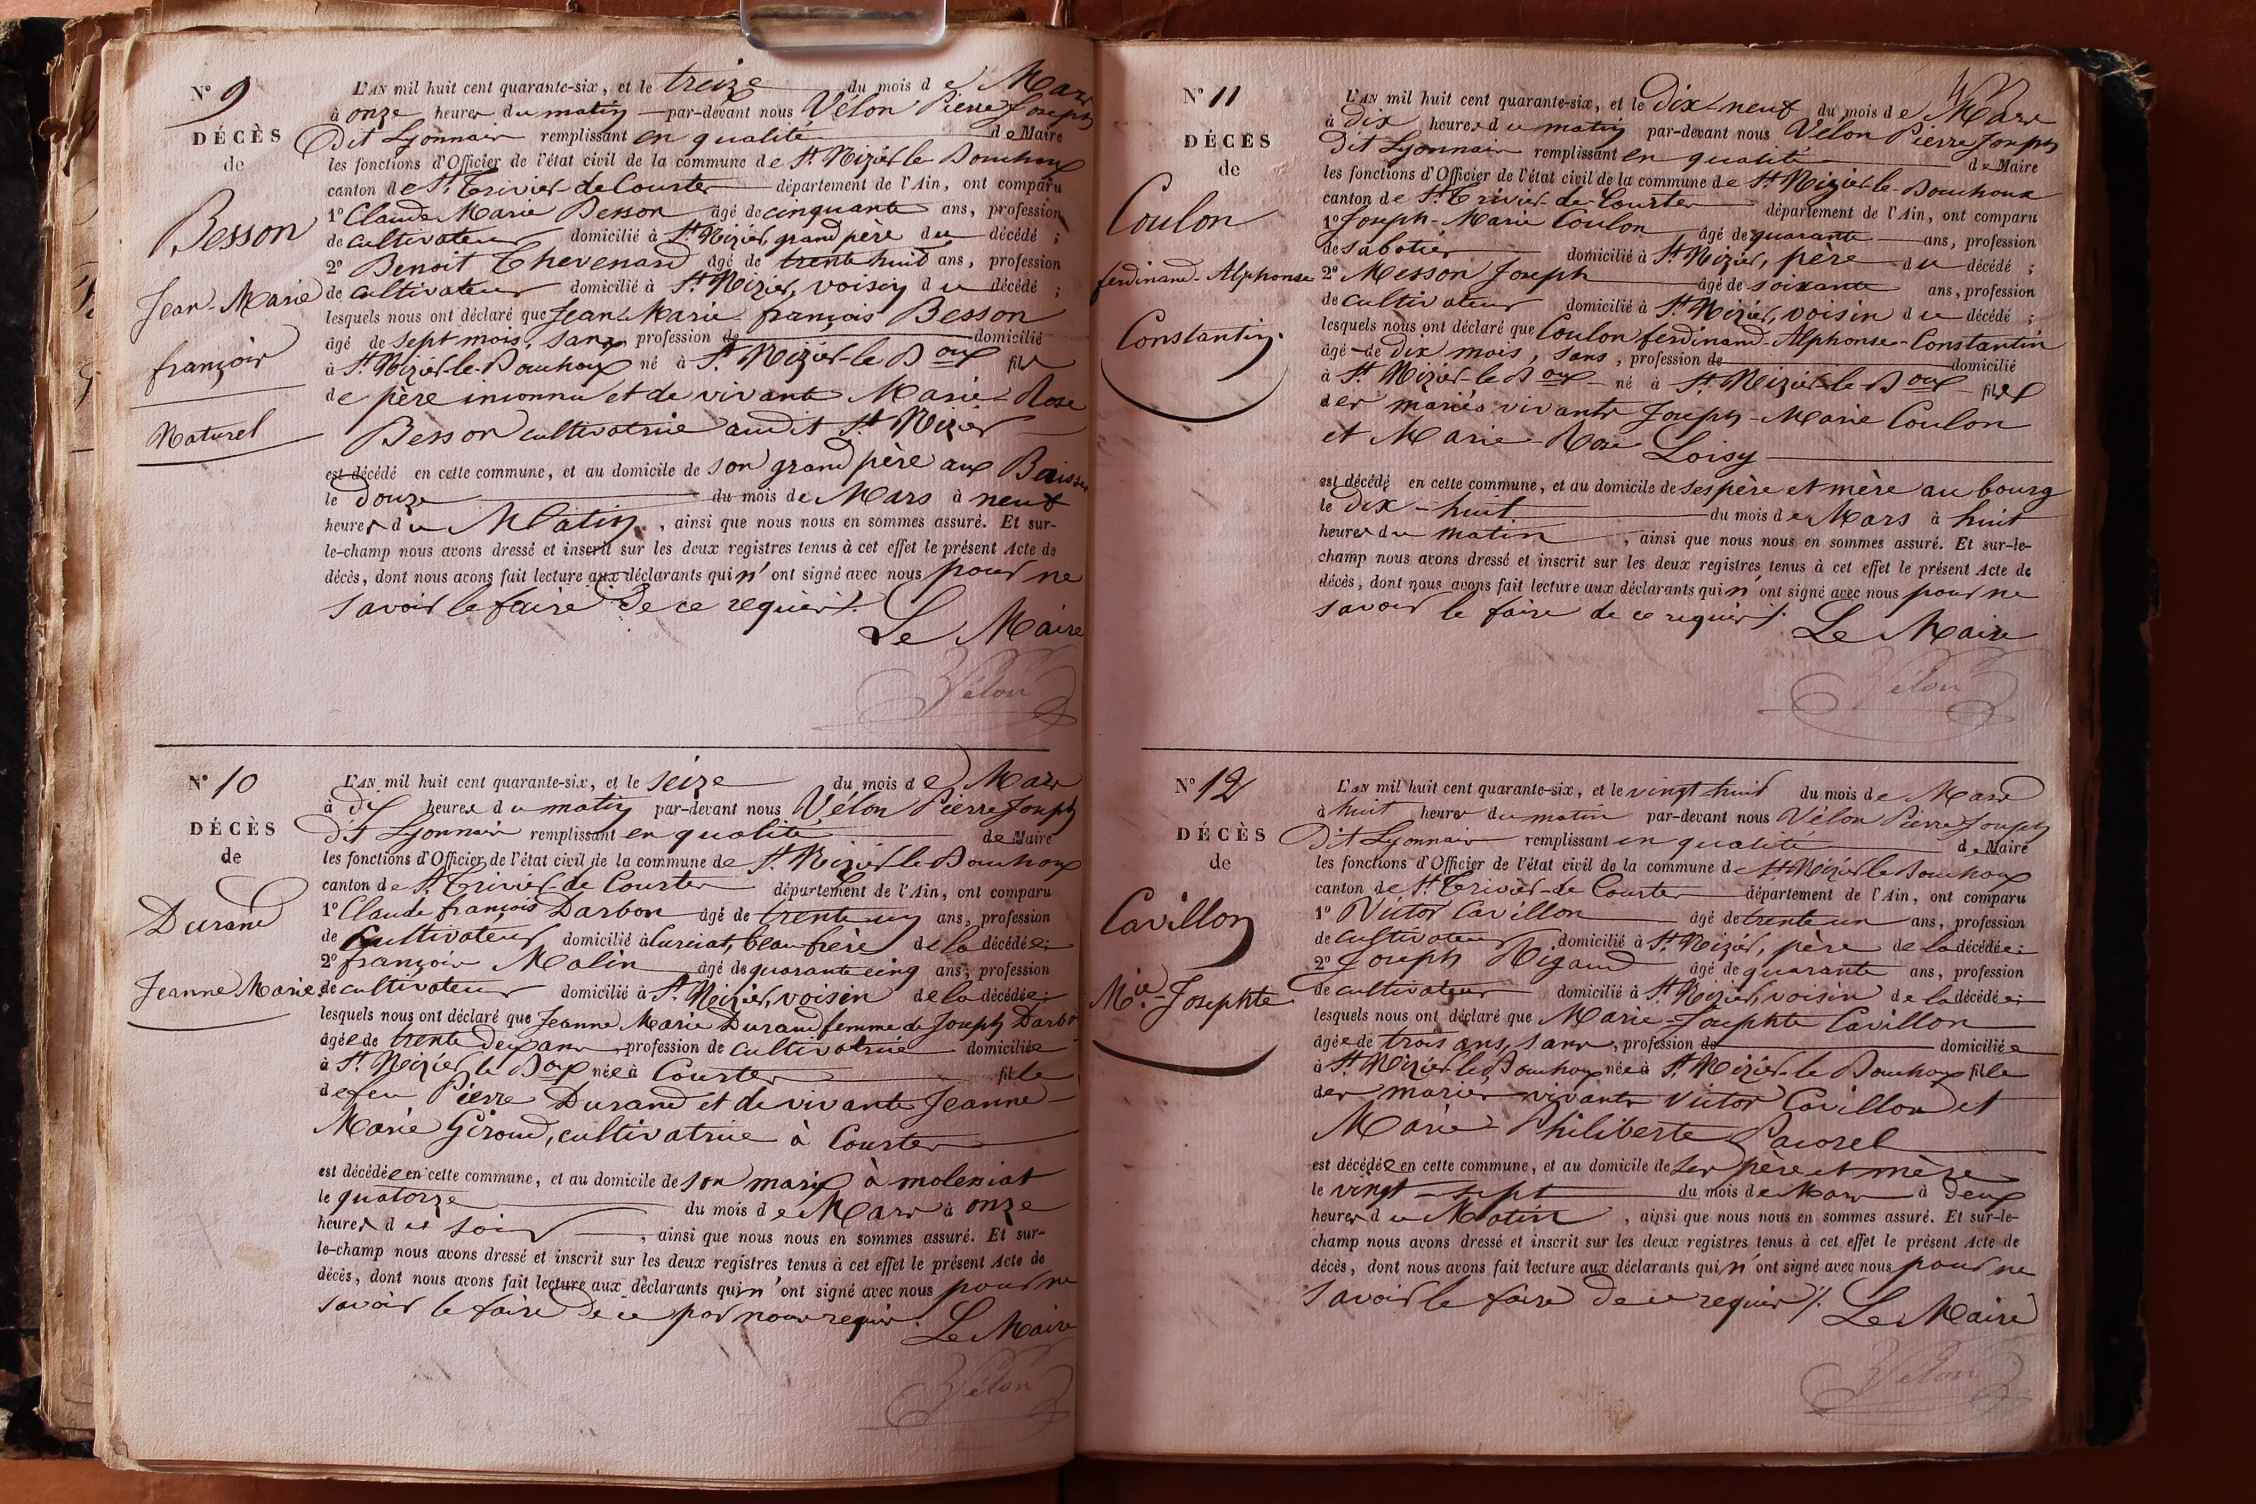 N° 9
DÉCÈS
de
Besson
Jean-Marie
françois
Naturel
L'AN mil huit cent quarante-six, et le treize du mois de Mars
à onze heures du matin par-devant nous Vélon Pierre Joseph
Dit Lyonnais remplissant en qualité de Maire
les fonctions d'Officier de l'état civil de la commune de St. Nizier le Bouchoux
canton de St. Trivier de Courtes département de l'Ain, ont comparu
1° Claude Marie Besson âgé de cinquante ans, profession
de cultivateur domicilié à St. Nizier, grand père du décédé ;
2° Benoit Thevenard âgé de trente huit ans, profession
de cultivateur domicilié à St. Nizier, voisin du décédé ;
lesquels nous ont déclaré que Jean Marie françois Besson
âgé de sept mois, sans profession de domicilié
à St. Nizier-le-Bouchoux né à St. Nizier-le Boux fils
de père inconnu et de vivante Marie-Rose
Besson cultivatrice audit St. Nizier
est décédé en cette commune, et au domicile de son grand père aux
le douze du mois de Mars à neuf
heures du Matin, ainsi que nous nous en sommes assuré. Et sur-
le-champ nous avons dressé et inscrit sur les deux registres tenus à cet effet le présent Acte de
décès, dont nous avons fait lecture aux déclarants qui n'ont signé avec nous pour ne
savoir le faire de ce requis /.
Le Maire
Vélon
N° 10
DÉCÈS
de
Durand
Jeanne Marie
L'AN mil huit cent quarante-six, et le seize du mois de Mars
à dix heures du matin par-devant nous Vélon Pierre Joseph
Dit Lyonnais remplissant en qualité de Maire
les fonctions d'Officier de l'état civil de la commune de St. Nizier le Bouchoux
canton de St. Trivier-de Courtes département de l'Ain, ont comparu
1° Claude françois Darbon âgé de trente un ans, profession
de cultivateur domicilié à Curciat, beau frère de la décédée ;
2° françois Malin âgé de quarante cinq ans, profession
de cultivateur domicilié à St. Nizier, voisin de la décédée ;
lesquels nous ont déclaré que Jeanne Marie Durand femme de Joseph Darbon
âgée de trente deux ans profession de cultivatrice domiciliée
à St. Nizier le Boux née à Courtes fille
de feu Pierre Durand et de vivante Jeanne-
Marie Giroud, cultivatrice à Courtes
est décédée en cette commune, et au domicile de son mari à
le quatorze du mois de Mars à onze
heures du soir, ainsi que nous nous en sommes assuré. Et sur-
le-champ nous avons dressé et inscrit sur les deux registres tenus à cet effet le présent Acte de
décès, dont nous avons fait lecture aux déclarants qui n'ont signé avec nous pour ne
savoir le faire de ce par nous requis.
Le Maire
Vélon
4
N° 11
DÉCÈS
de
Coulon
ferdinand-Alphonse
Constantin.
L'AN mil huit cent quarante-six, et le Dix neuf du mois de Mars
à dix heures du matin par-devant nous Vélon Pierre Joseph
Dit Lyonnais remplissant en qualité de Maire
les fonctions d'Officier de l'état civil de la commune de St. Nizier-le-Bouchoux
canton de St. Trivier-de Courtes département de l'Ain, ont comparu
1° Joseph-Marie Coulon âgé de quarante ans, profession
de sabotier domicilié à St. Nizier, père du décédé ;
2° Messon Joseph âgé de soixante ans, profession
de cultivateur domicilié à St. Nizier, voisin du décédé ;
lesquels nous ont déclaré que Coulon ferdinand-Alphonse-Constantin
âgé de dix mois, sans, profession de domicilié
à St. Nizier-le Boux né à St. Nizier-le Boux fils
des mariés vivants Joseph-Marie Coulon
et Marie-Rose Loisy
est décédé en cette commune, et au domicile de ses père et mère au bourg
le Dix-huit du mois de Mars à huit
heures du matin, ainsi que nous nous en sommes assuré. Et sur-le-
champ nous avons dressé et inscrit sur les deux registres tenus à cet effet le présent Acte de
décès, dont nous avons fait lecture aux déclarants qui n'ont signé avec nous pour ne
savoir le faire de ce requis /.
Le Maire
Vélon
N° 12
DÉCÈS
de
Cavillon
Mie.-Josephte
L'AN mil huit cent quarante-six, et le vingt huit du mois de Mars
à huit heures du matin par-devant nous Vélon Pierre Joseph
Dit Lyonnais remplissant en qualité de Maire
les fonctions d'Officier de l'état civil de la commune de St. Nizier le Bouchoux
canton de St. Trivier-de Courtes département de l'Ain, ont comparu
1° Victor Cavillon âgé de trente un ans, profession
de cultivateur domicilié à St. Nizier, père de la décédée ;
2° Joseph Rigaud âgé de quarante ans, profession
de cultivateur domicilié à St. Nizier, voisin de la décédée ;
lesquels nous ont déclaré que Marie-Josephte Cavillon
âgée de trois ans, sans, profession de domiciliée
à St. Nizier le Bouchoux née à St. Nizier-le Bouchoux fille
des mariés vivants Victor Cavillon et
Marie-Philiberte Pacorel
est décédée en cette commune, et au domicile de ses père et mère
le vingt-sept du mois de Mars à deux
heures du Matin, ainsi que nous nous en sommes assuré. Et sur-le-
champ nous avons dressé et inscrit sur les deux registres tenus à cet effet le présent Acte de
décès, dont nous avons fait lecture aux déclarants qui n'ont signé avec nous pour ne
savoir le faire de ce requis /.
Le Maire
Vélon